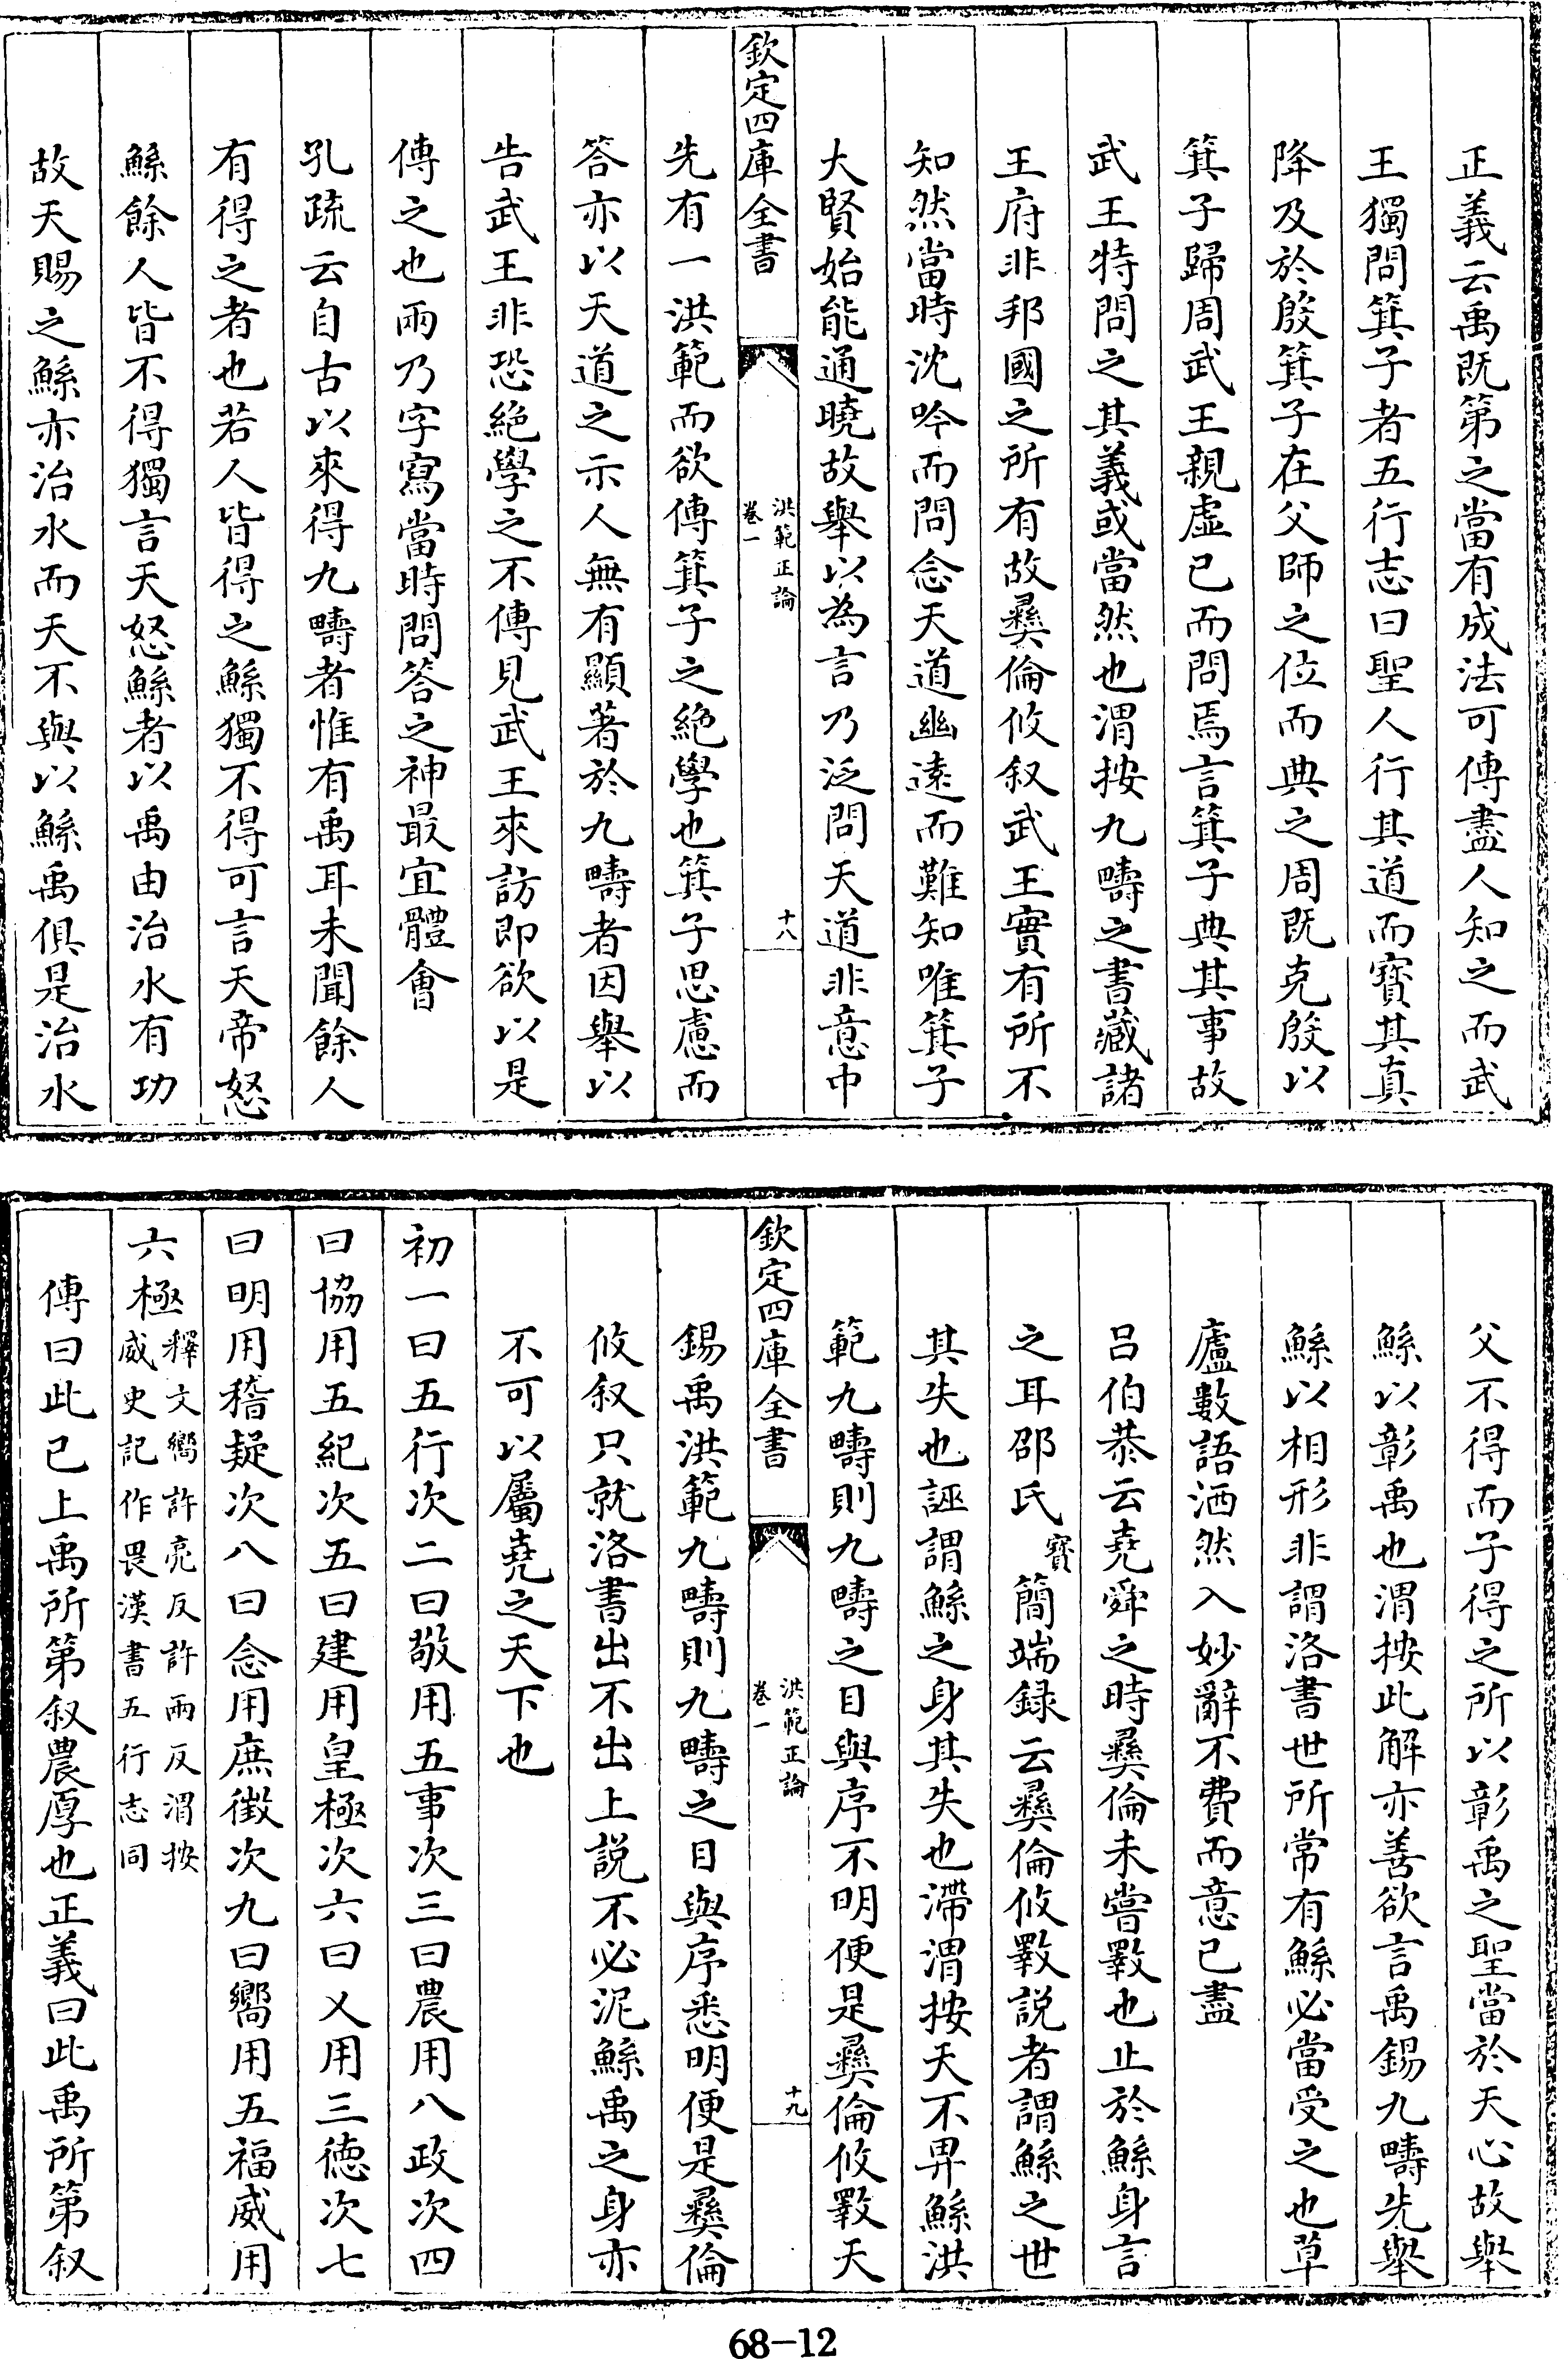 正義云禹既第之當有成法可傳盡人知之而武
王獨問箕子者五行志曰聖人行其道而寶其真
降及於殷箕子在父師之位而典之周既克殷以
箕子歸周武王親虛已而問焉言箕子典其事故
武王特問之其義或當然也渭按九疇之書藏諸
王府非邦國之所有故彝倫攸叙武王實有所不
知然當時沈吟而問念天道幽遠而難知唯箕子
大賢始能通曉故舉以為言乃泛問天道非意中
欽定四庫全書
洪範正論
卷一
十八
先有一洪範而欲傳箕子之絶學也箕子思慮而
答亦以天道之示人無有顯著於九疇者因舉以
告武王非恐絶學之不傳見武王來訪即欲以是
傳之也兩乃字寫當時問答之神最宜體會
孔疏云自古以來得九疇者惟有禹耳未聞餘人
有得之者也若人皆得之鯀獨不得可言天帝怒
鯀餘人皆不得獨言天怒鯀者以禹由治水有功
故天賜之鯀亦治水而天不與以鯀禹俱是治水
父不得而子得之所以彰禹之聖當於天心故舉
鯀以彰禹也渭按此解亦善欲言禹錫九疇先舉
鯀以相形非謂洛書世所常有鯀必當受之也草
廬數語洒然入妙辭不費而意已盡
吕伯恭云堯舜之時彝倫未嘗斁也止於鯀身言
之耳邵氏寶簡端録云彝倫攸斁説者謂鯀之世
其失也誣謂鯀之身其失也滯渭按天不畀鯀洪
範九疇則九疇之目與序不明便是彝倫攸斁天
欽定四庫全書
洪範正論
卷一
十九
錫禹洪範九疇則九疇之目與序悉明便是彝倫
攸叙只就洛書出不出上説不必泥鯀禹之身亦
不可以屬堯之天下也
初一曰五行次二曰敬用五事次三曰農用八政次四
曰協用五紀次五曰建用皇極次六曰乂用三徳次七
曰明用稽疑次八曰念用庶徴次九曰嚮用五福威用
六極釋文嚮許亮反許兩反渭按
威史記作畏漢書五行志同
傳曰此已上禹所第叙農厚也正義曰此禹所第叙
68-12